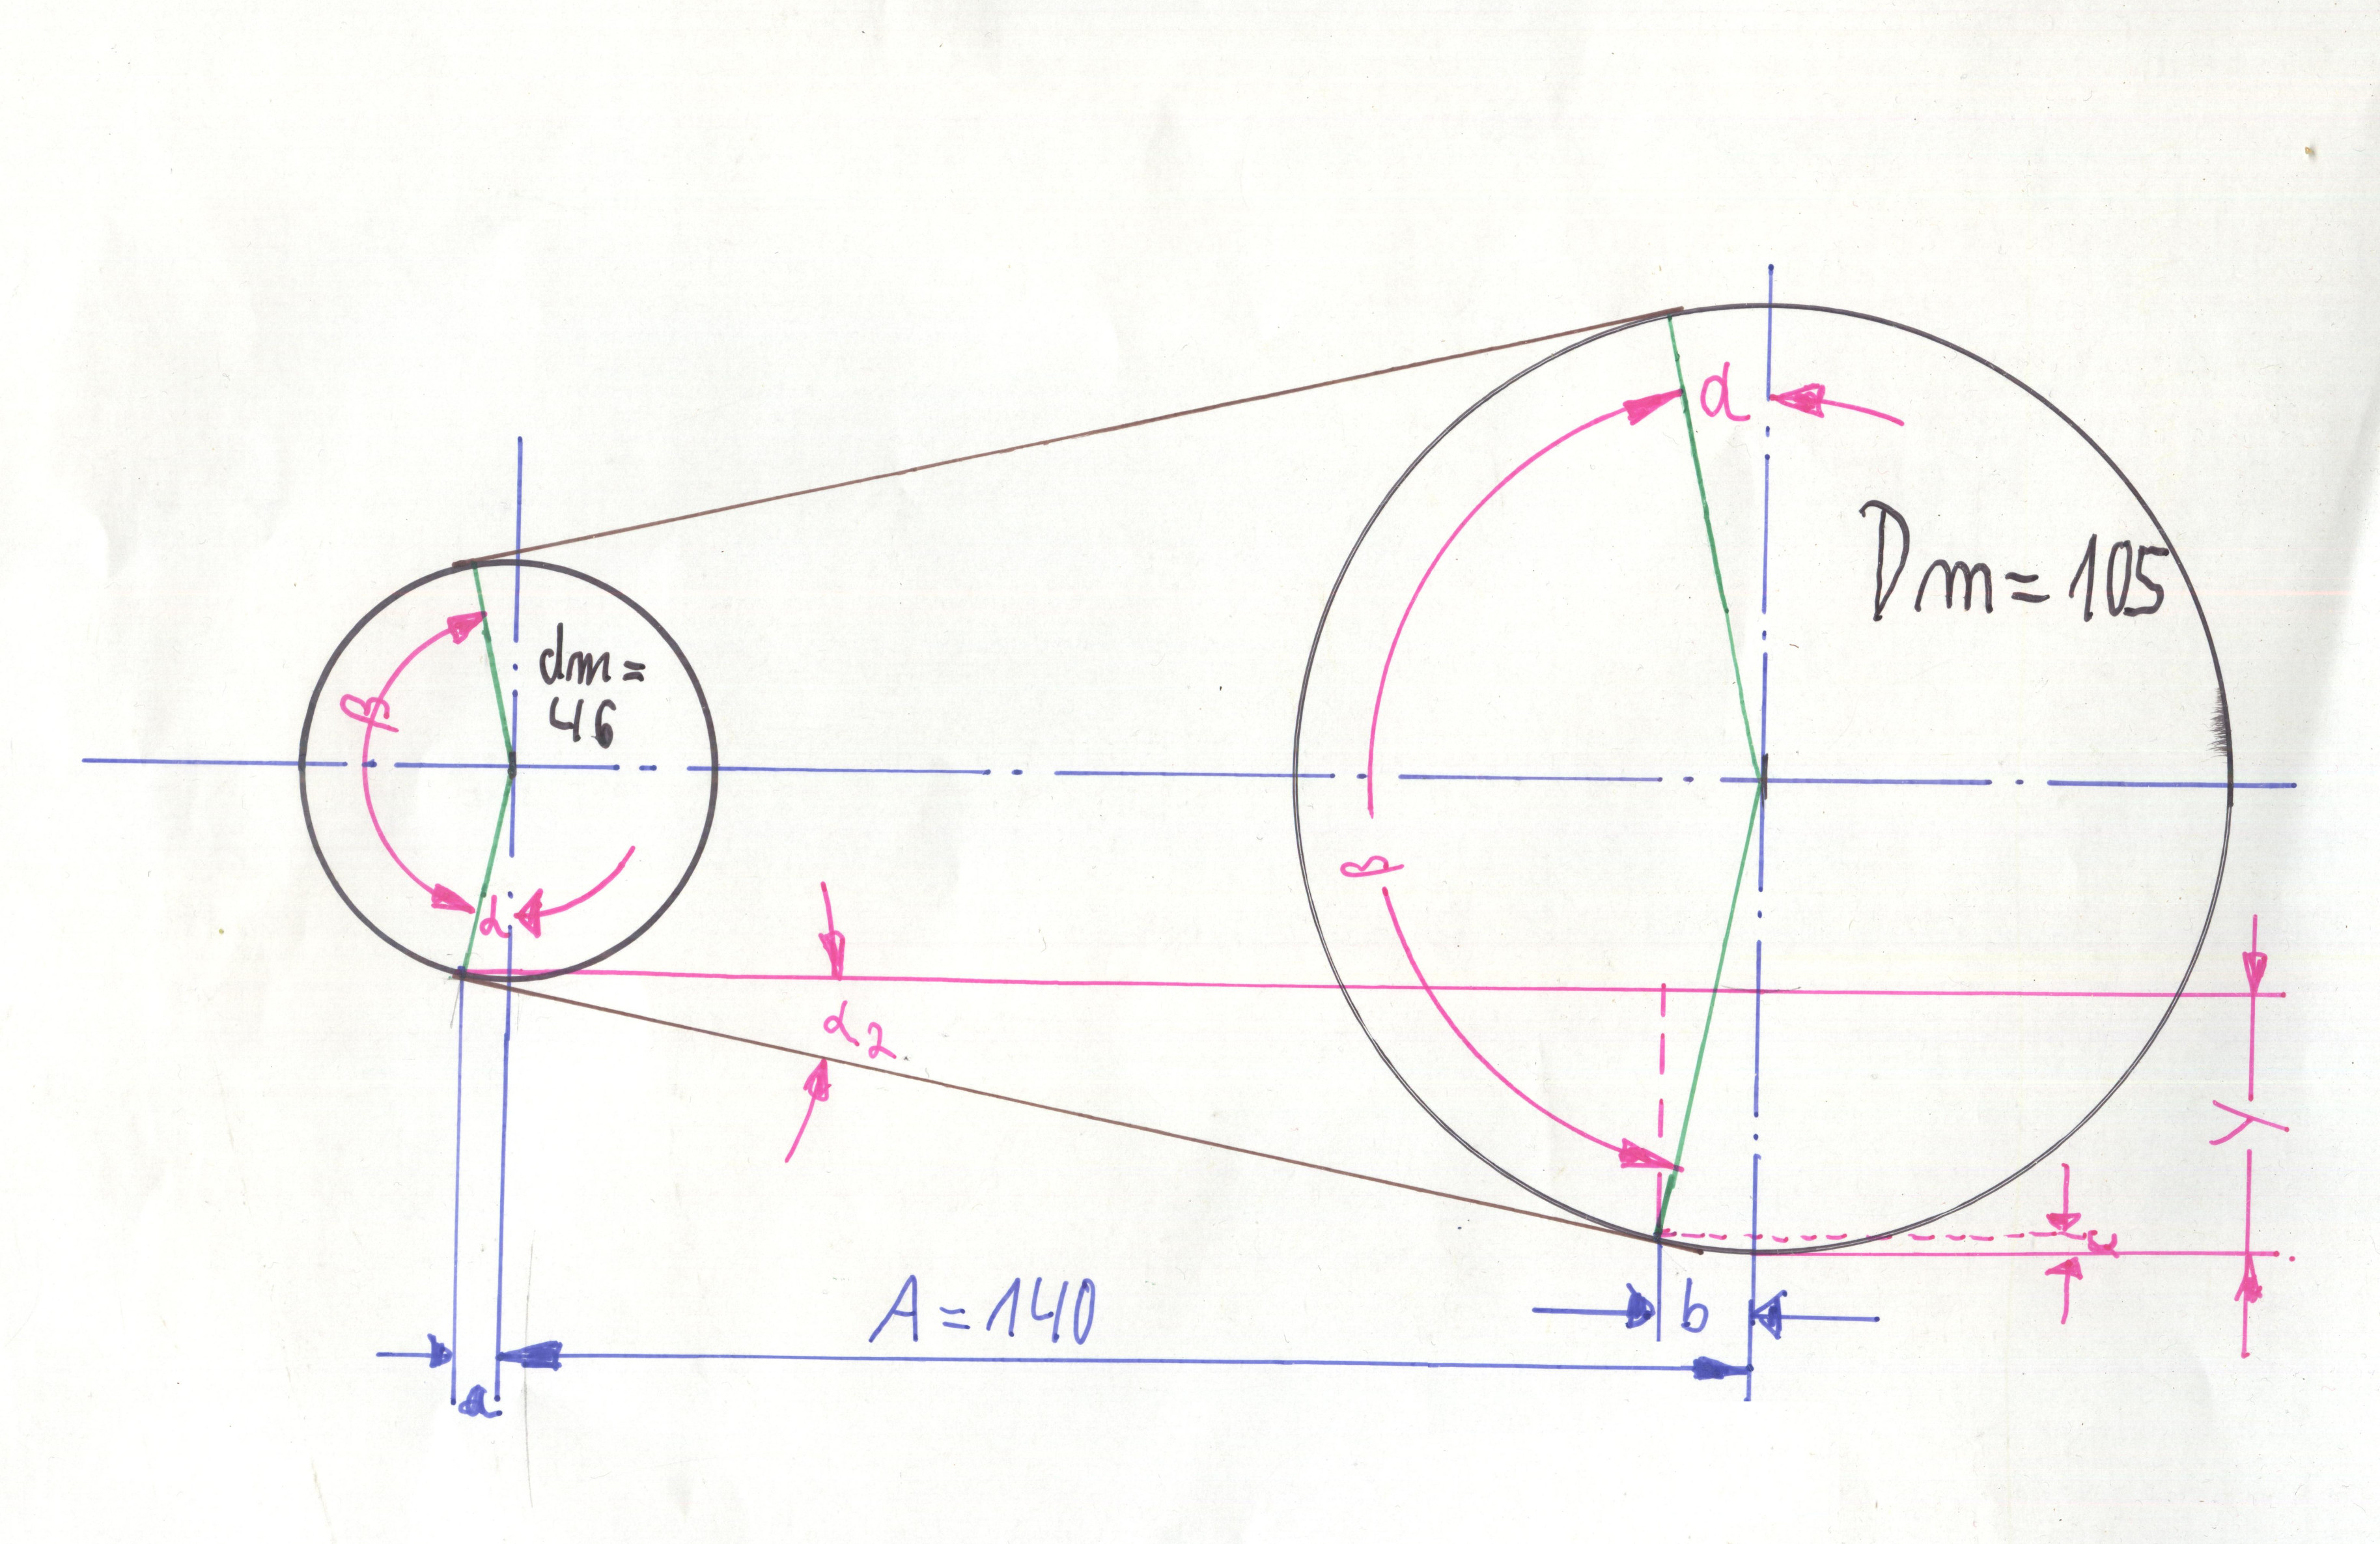 α
Dm=105
dm=
46
β
β
α
α2
y
x
A=140
b
a